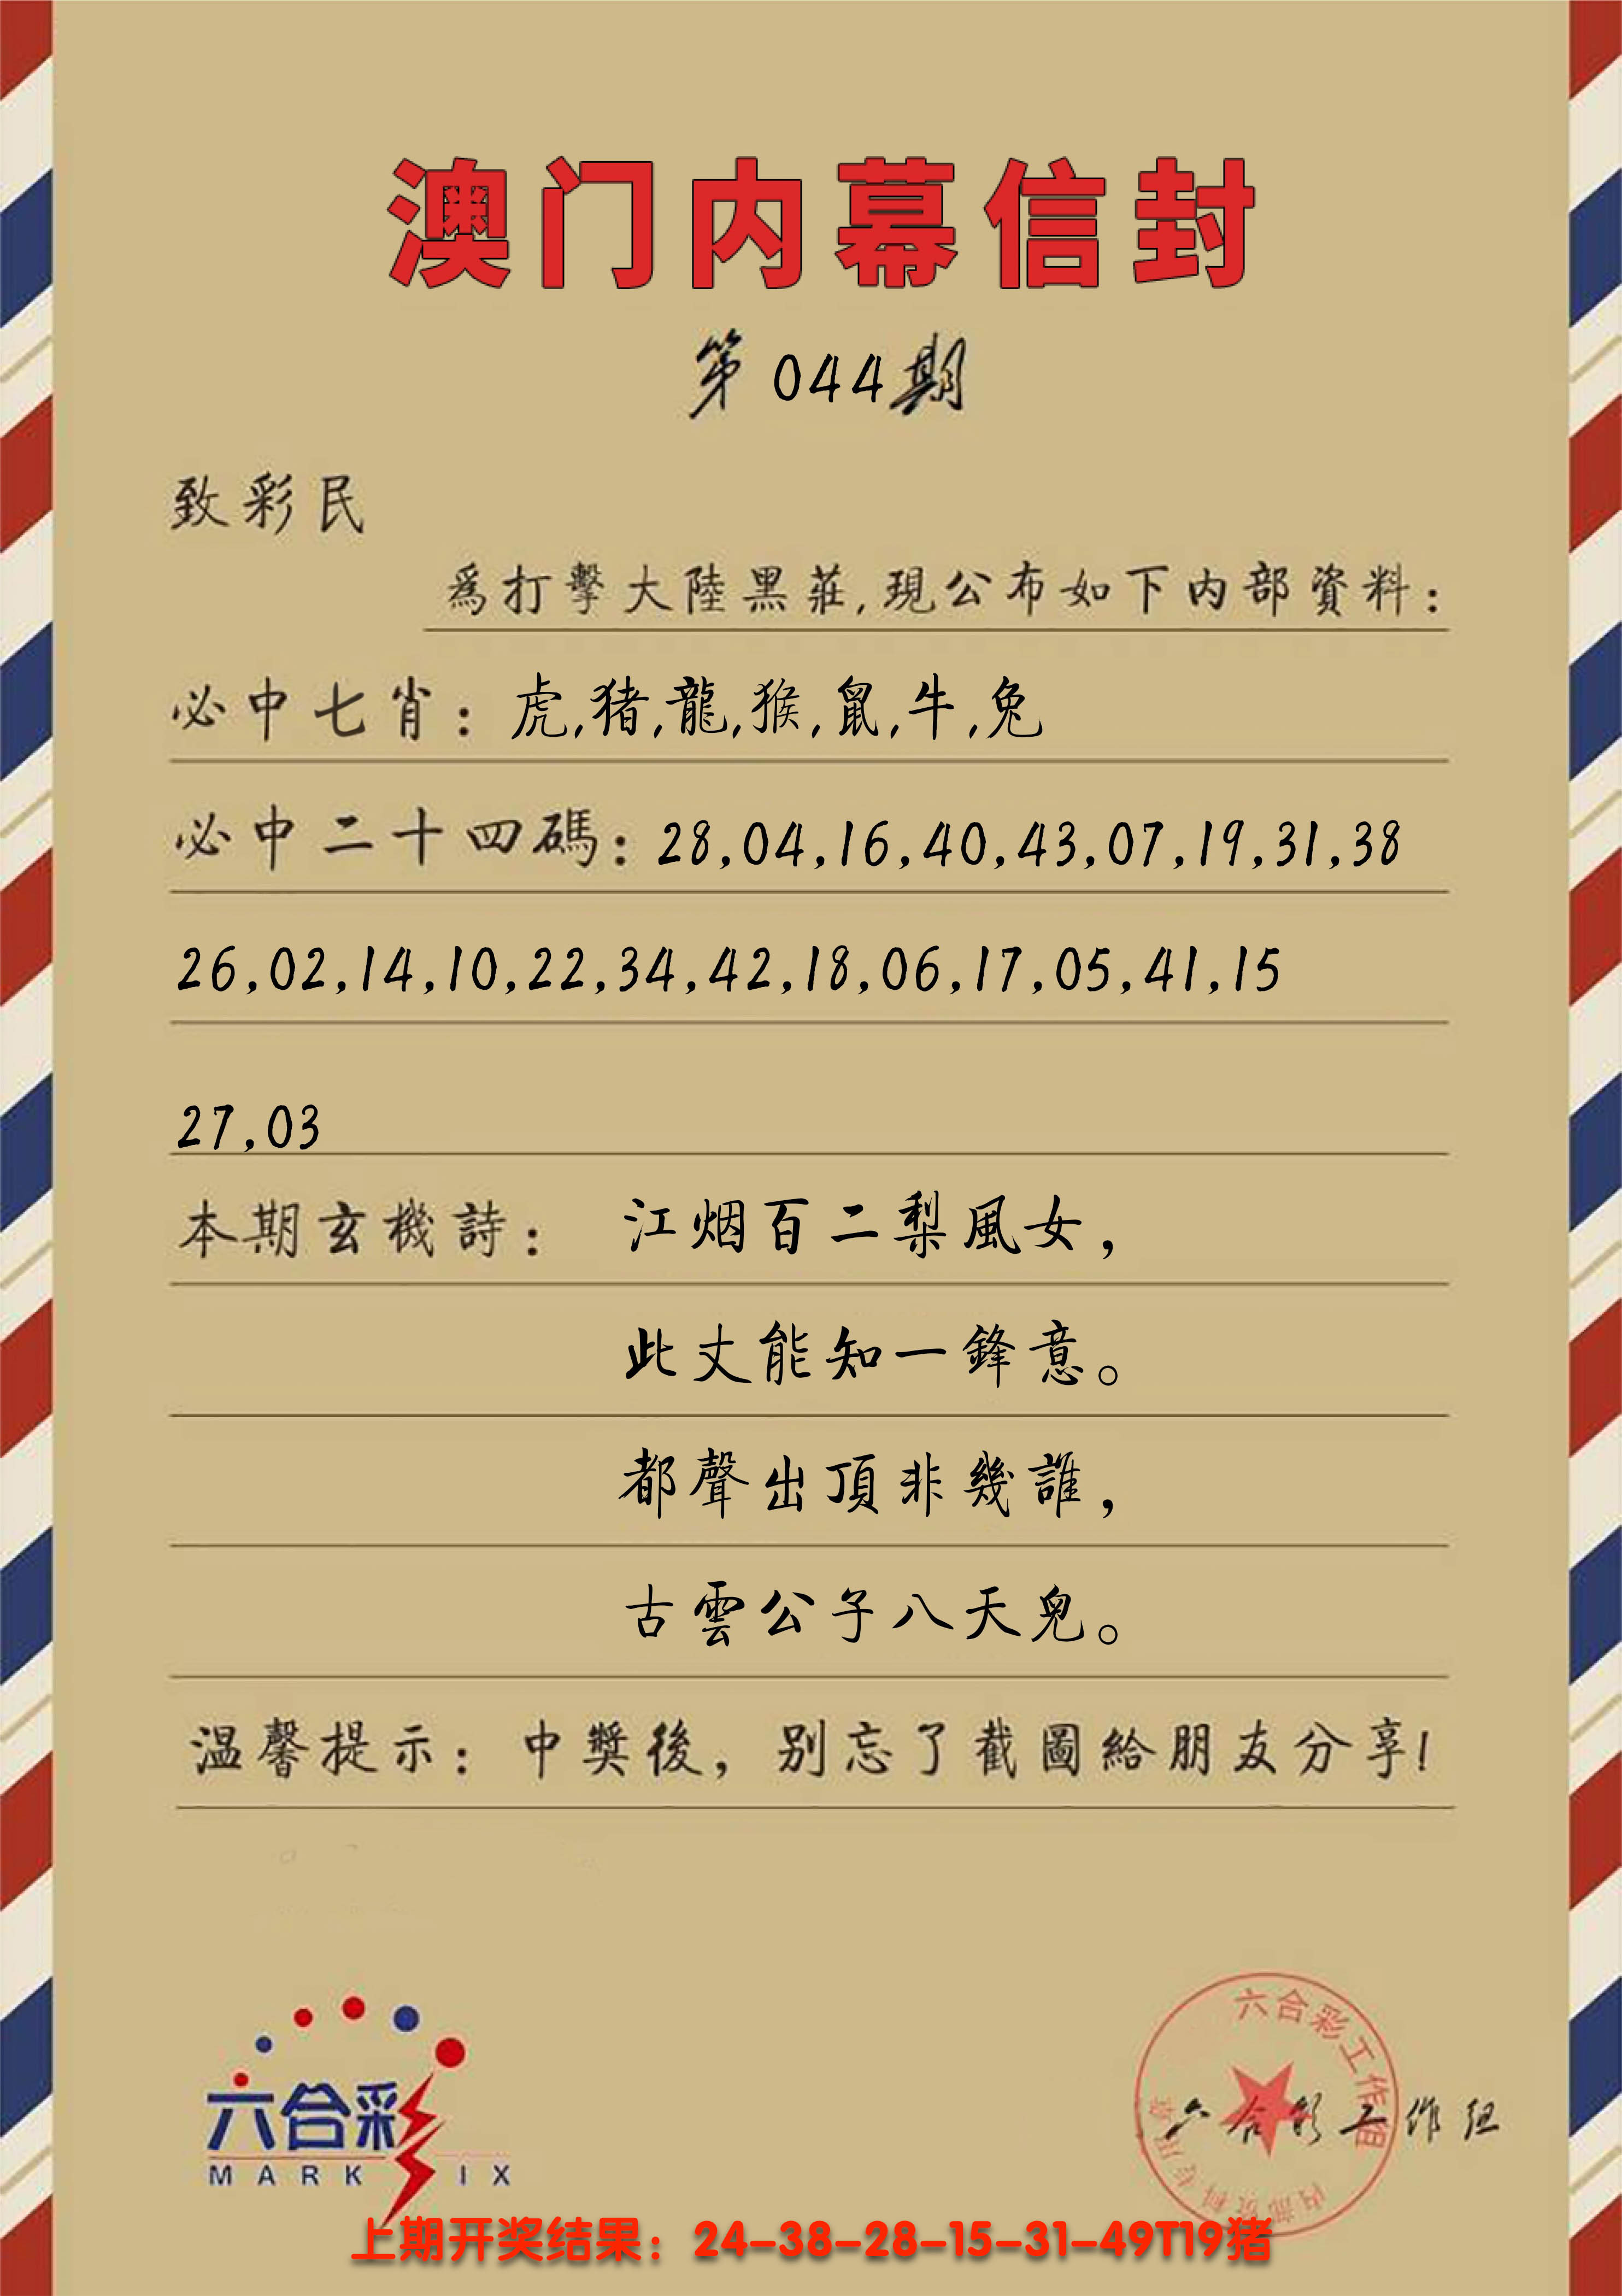 澳门内幕信封
第044期
致彩民
爲打擊大陸黑莊,現公布如下内部資料:
必中七肖:虎,猪,龍,猴,鼠,牛,兔
必中二十四碼:28,04,16,40,43,07,19,31,38
26,02,14,10,22,34,42,18,06,17,05,41,15
27,03
本期玄機詩: 江烟百二梨風女,
此丈能知一鋒意。
都聲出頂非幾誰,
古雲公子八天皃。
温馨提示:中獎後,别忘了截圖給朋友分享!
六合彩
MARK IX
六合彩工作组
内部资料专用章
六合彩工作组
上期开奖结果:24-38-28-15-31-49T19猪